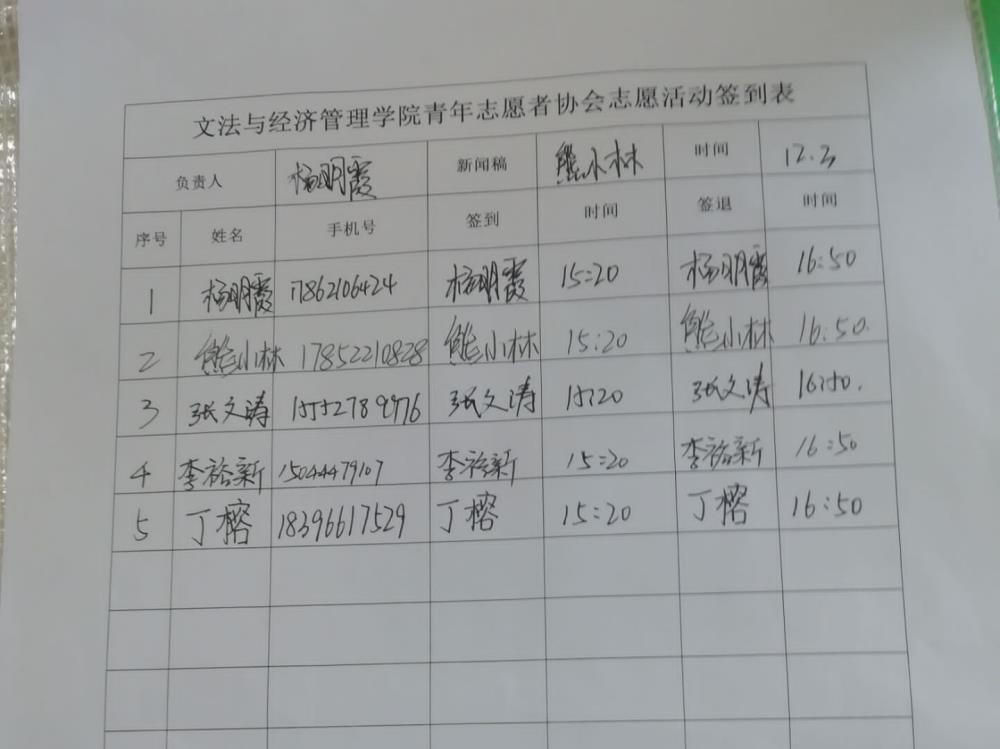 文法与经济管理学院青年志愿者协会志愿活动签到表
负责人 杨明霞 新闻稿 熊小林 时间 12.3
序号 姓名 手机号 签到 时间 签退 时间
1 杨明霞 17862106424 杨明霞 15:20 杨明霞 16:50
2 熊小林 17852210828 熊小林 15:20 熊小林 16:50.
3 张文涛 15552789976 张文涛 15:20 张文涛 16:50.
4 李裕新 15044479107 李裕新 15:20 李裕新 16:50
5 丁榕 18396617529 丁榕 15:20 丁榕 16:50